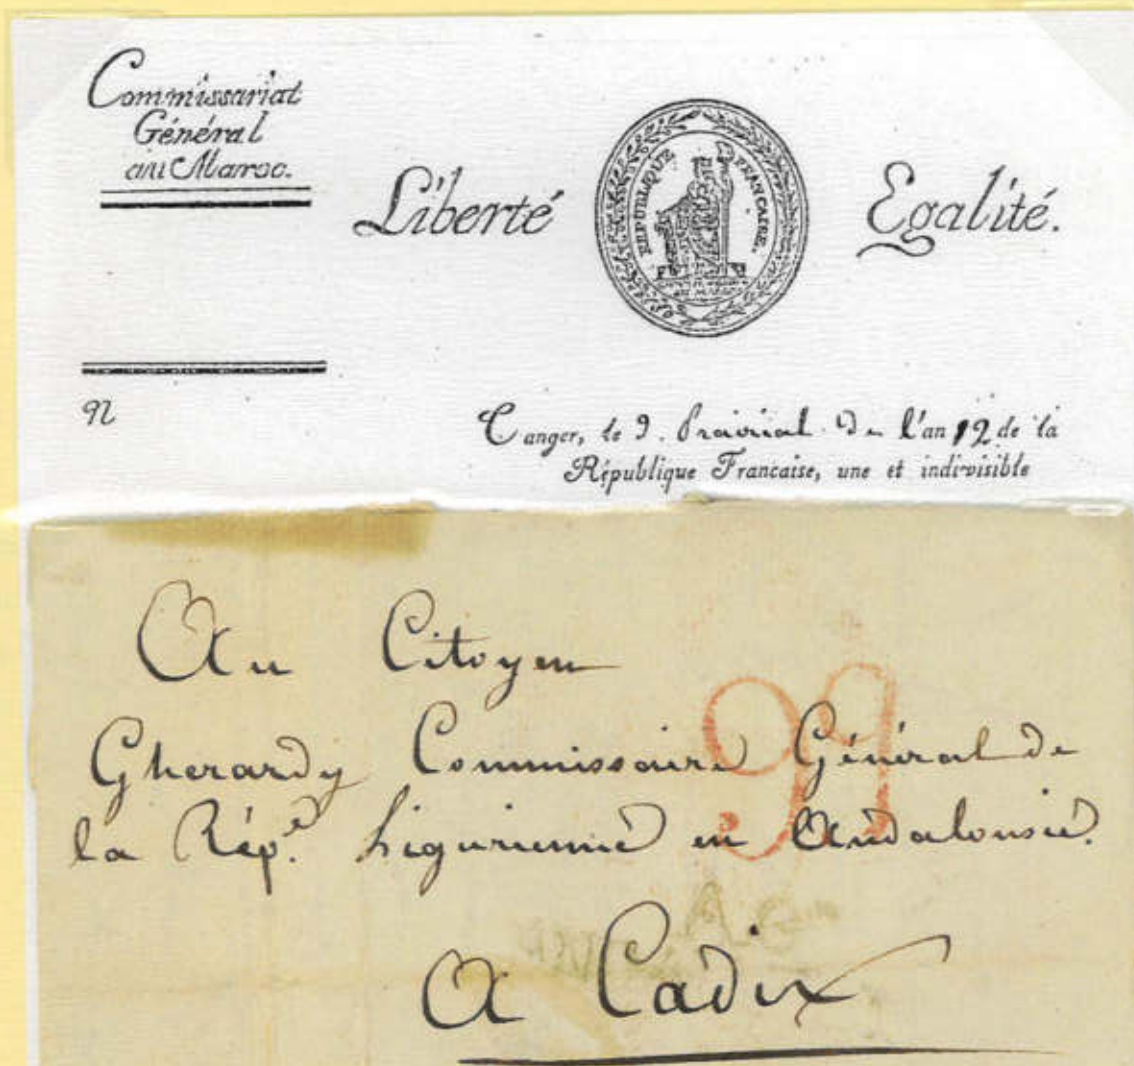 Commissariat
Général
au Maroc.
Liberté
RÉPUBLIQUE FRANÇAISE.
Egalité.
N
Tanger, le 9. Prairial de l'an 12 de la
République Francaise, une et indivisible
Au Citoyen
Gherardy Commissaire Général de
la Rép.e Ligurienne en Andalousie.
A Cadix